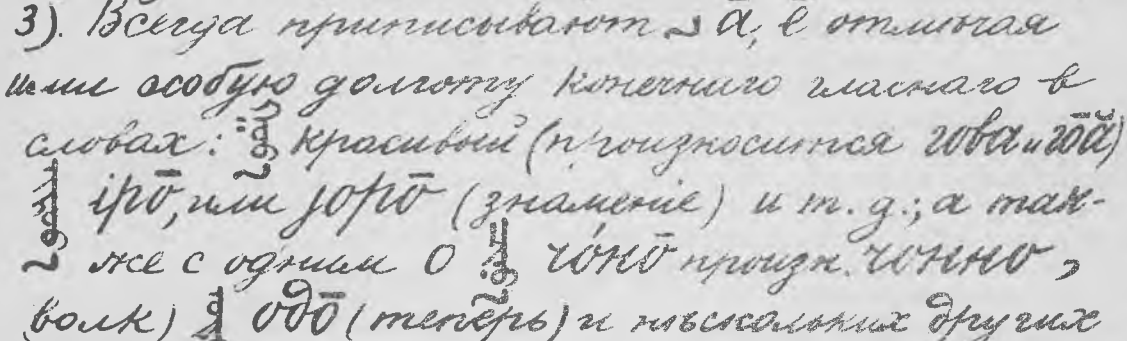 3). Всегда приписывают ᠊ᠠ ā, ē отличая
ими особую долготу конечнаго гласнаго в
словах: красивый (произносится гова и гōā)
iрō, или jорō (знаменiе) и т. д.; а так-
же с одним о чонō произн. чонно,
волк) одō (теперь) и нѣскольких других